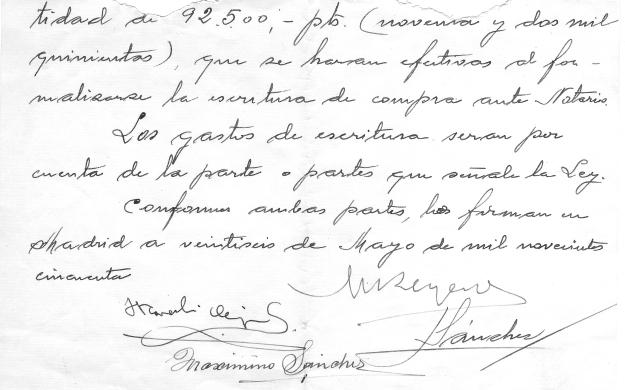 tidad de 92.500,- pts. (noventa y dos mil
quinientas), que se haran efectivas al for-
malizarse la escritura de compra ante Notario.
Los gastos de escritura seran por
cuenta de la parte o partes que señale la Ley.
Conformes ambas partes, los firman en
Madrid a veintiseis de Mayo de mil noveciento
cincuenta
Sánchez
Maximino Sánchez